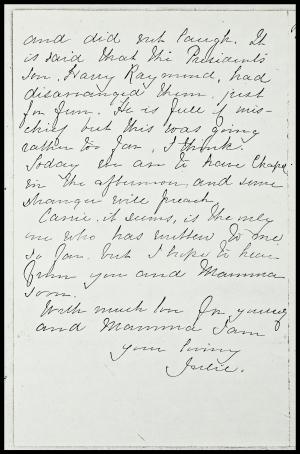 and did not laugh. It
is said that the President's
son, Harry Raymond, had
disarranged them, just
for fun. He is full of mis-
chief but this was going
rather too far, I think.
Today we are to have Chapel
in the afternoon, and some
stranger will preach.
Carrie, it seems, is the only
one who has written to me
so far, but I hope to hear
from you and Mamma
soon.
With much love for yourself
and Mamma I am
your loving
Julie.